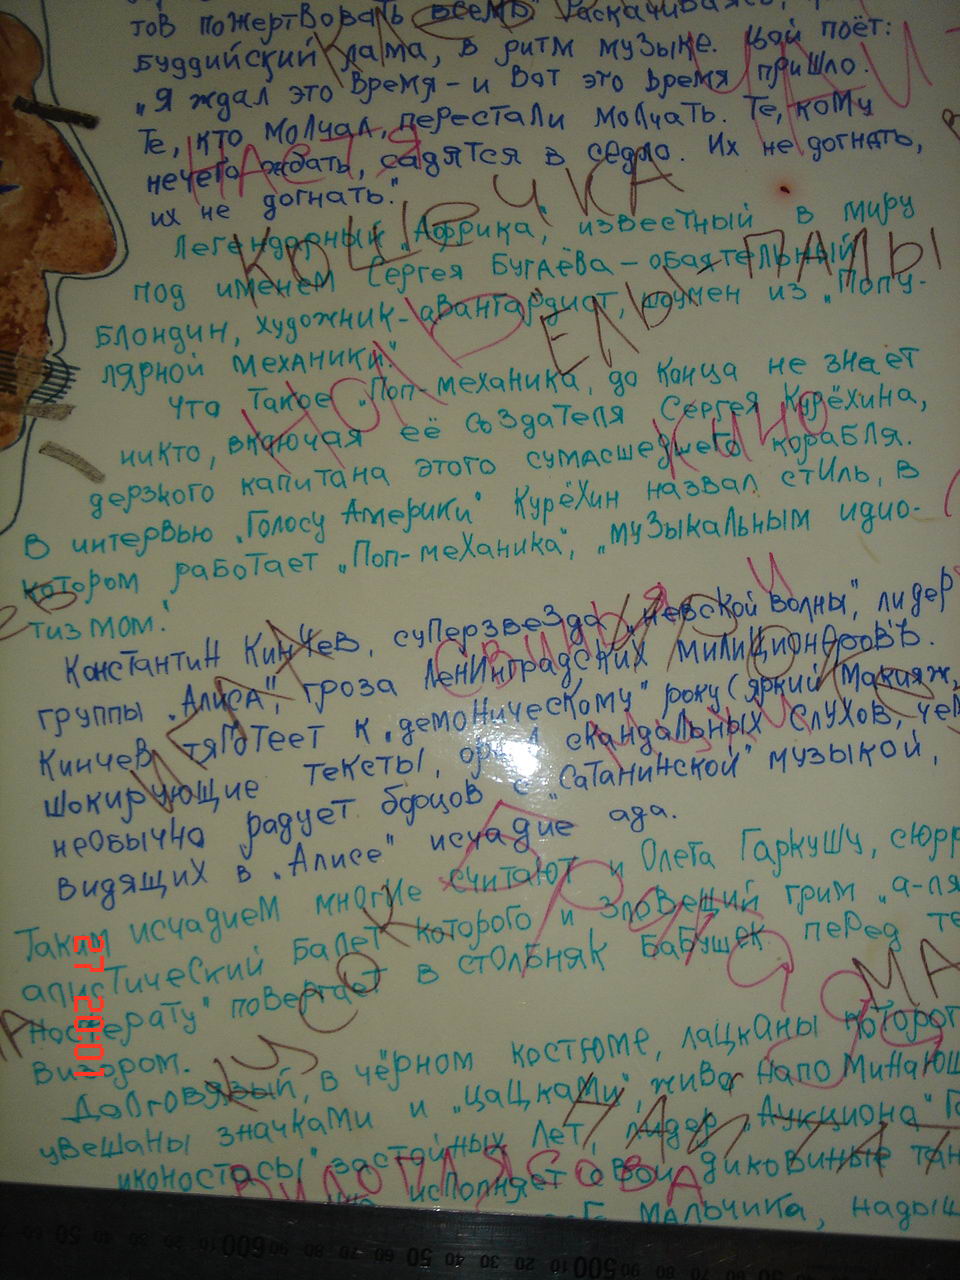 тов пожертвовать всемъ" Раскачиваясь,
буддийский лама, в ритм музыке. Цой поёт:
„Я ждал это время – и вот это время пришло.
Те, кто молчал, перестали молчать. Те, кому
нечего ждать, садятся в седло. Их не догнать,
их не догнать."
Легендарный „Африка", известный в миру
под именем Сергея Бугаёва – обаятельный
блондин, художник-авангардист, шоумен из „Попу-
лярной механики."
Что такое „Поп-механика, до конца не знает
никто, включая её создателя Сергея Курёхина,
дерзкого капитана этого сумасшедшего корабля.
В интервью „Голосу Америки" Курёхин назвал стиль, в
котором работает „Поп-механика", „музыкальным идио-
тизмом."
Константин Кинчев, суперзвезда „невской волны", лидер
группы „Алиса", гроза Ленинградских милиционеровъ.
Кинчев тяготеет к „демоническому" року (яркий макияж,
шокирующие тексты, скандальных слухов, чем
необычно радует борцов с „сатанинской" музыкой,
видящих в „Алисе" исчадие ада.
Таким исчадием многие считают и Олега Гаркушу, сюрр
алистический балет которого и зловещий грим „а-ля
Носферату" повергает в столбняк бабушек перед те
визором.
Долговязый, в чёрном костюме, лацканы которог
увешаны значками и „цацками", живо напоминающ
иконостасы застойных лет, лидер „Аукциона" Г
исполняет свои диковиные тан
мальчика, надыш
Настя
Кошечка
Ель-Пальы
Ноль
Кино
Свинья и
Бригада
МА
Чапита
Вилоплясова
27 20:01